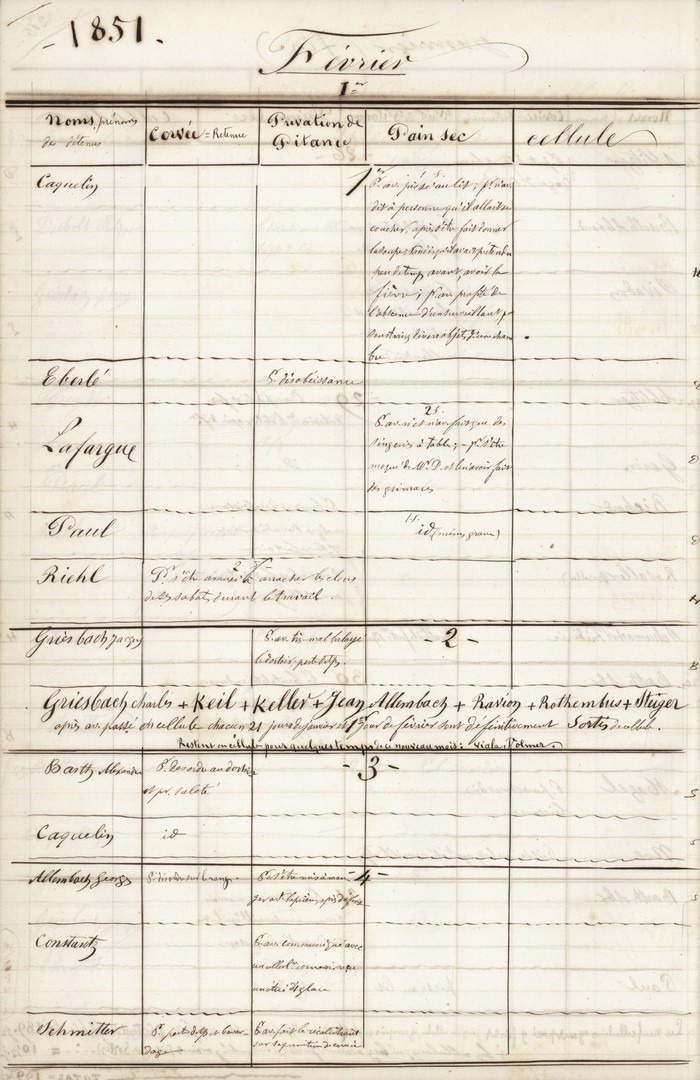 1851.
Février
1er
Noms, prénoms
de détenus
Corvée = Retenue
Privation de
Pitance
Pain sec
cellule
Caquelin
1er
P. av. pissé au lit; p. n'av.
dit à personne qu'il allait se
coucher, après s'être fait donner
la soupe, tandis qu'il avait prétendu
peu de temps avant, avoir la
fièvre; p. av. profité de
l'absence d'un surveillant p.
soustraire divers objets d'une cham
bre
Eberlé
P. désobéissance
Lafargue
2 j.
singeries à table; - p. s'être
moqué de Mr. D. et lui avoir fait
des grimaces
Paul
id (moins grave)
Riehl
P. s'être amusé à arracher les clous
de ses sabots durant le travail.
Griesbach Jacques
P. av. très mal balayé
le dortoir, perte de tps.
- 2 -
Griesbach charles + Keil + Keller + Jean Allembach + Ravion + Rothembus + Steiger
après av. passé en cellule chacun 21 jours de janvier et 1er jour de février sont définitivement Sortis de cellule.
Restent en cellule pour quelques temps de ce nouveau mois: Viala. Volmer.
Barth Alexandre
P. désordre au dortoir
et pr. saleté
- 3 -
Caquelin
id
Allembach Georges
P. désordre sur les rangs.
P. s'être mis à man
- 4 -
Constantz
P. av. communiqué avec
Schmitter
P. perte de tps et bavar
dage
P. av. fait le récalcitrant